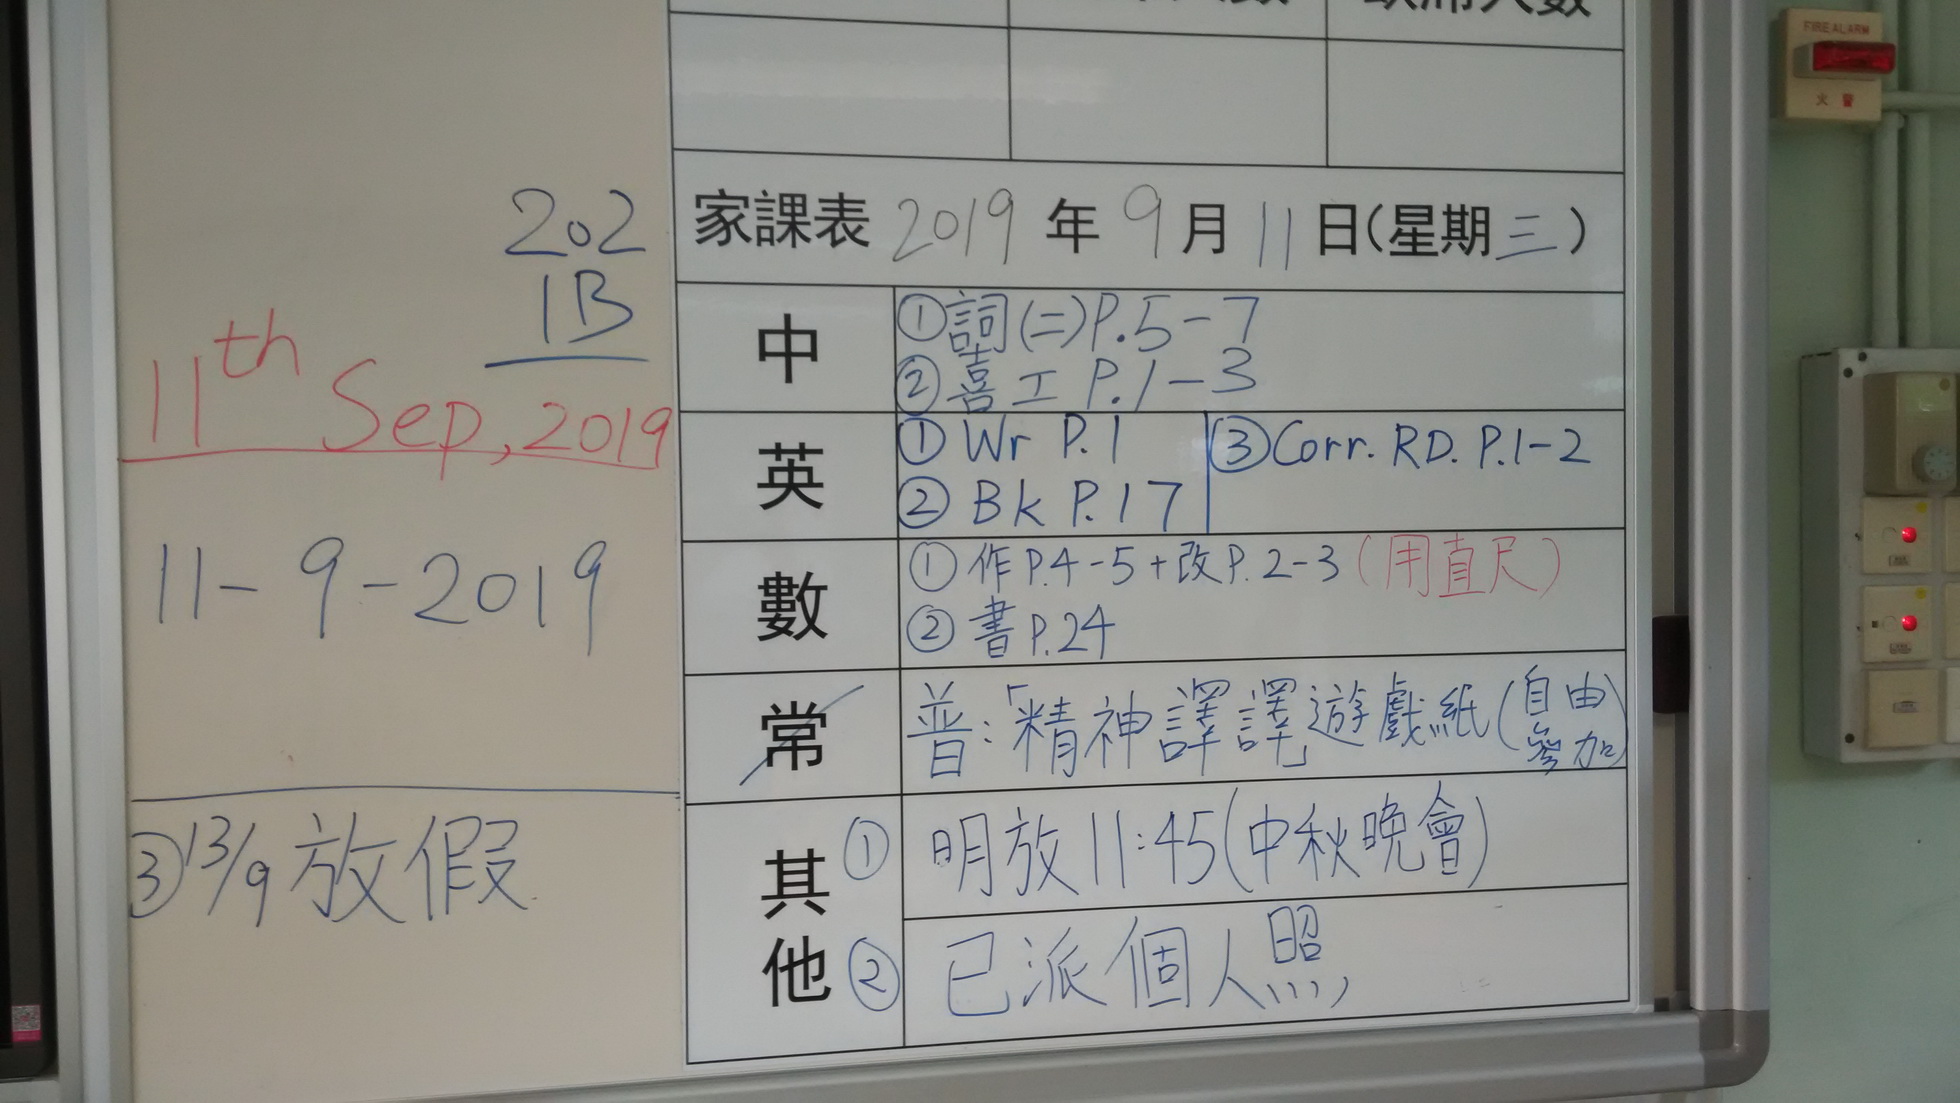 缺席人數
202
1B
11th Sep, 2019
11-9-2019
③13/9放假
家課表 2019 年 9 月 11 日(星期三)
中
①詞(二)P.5-7
②喜工 P.1-3
英
① Wr P.1
② Bk P.17
③Corr. RD. P.1-2
數
① 作P.4-5+改P.2-3(用直尺)
② 書P.24
常
普:「精神譯譯」遊戲紙(自由參加)
其他
① 明放11:45(中秋晚會)
② 已派個人照
FIRE ALARM
火警